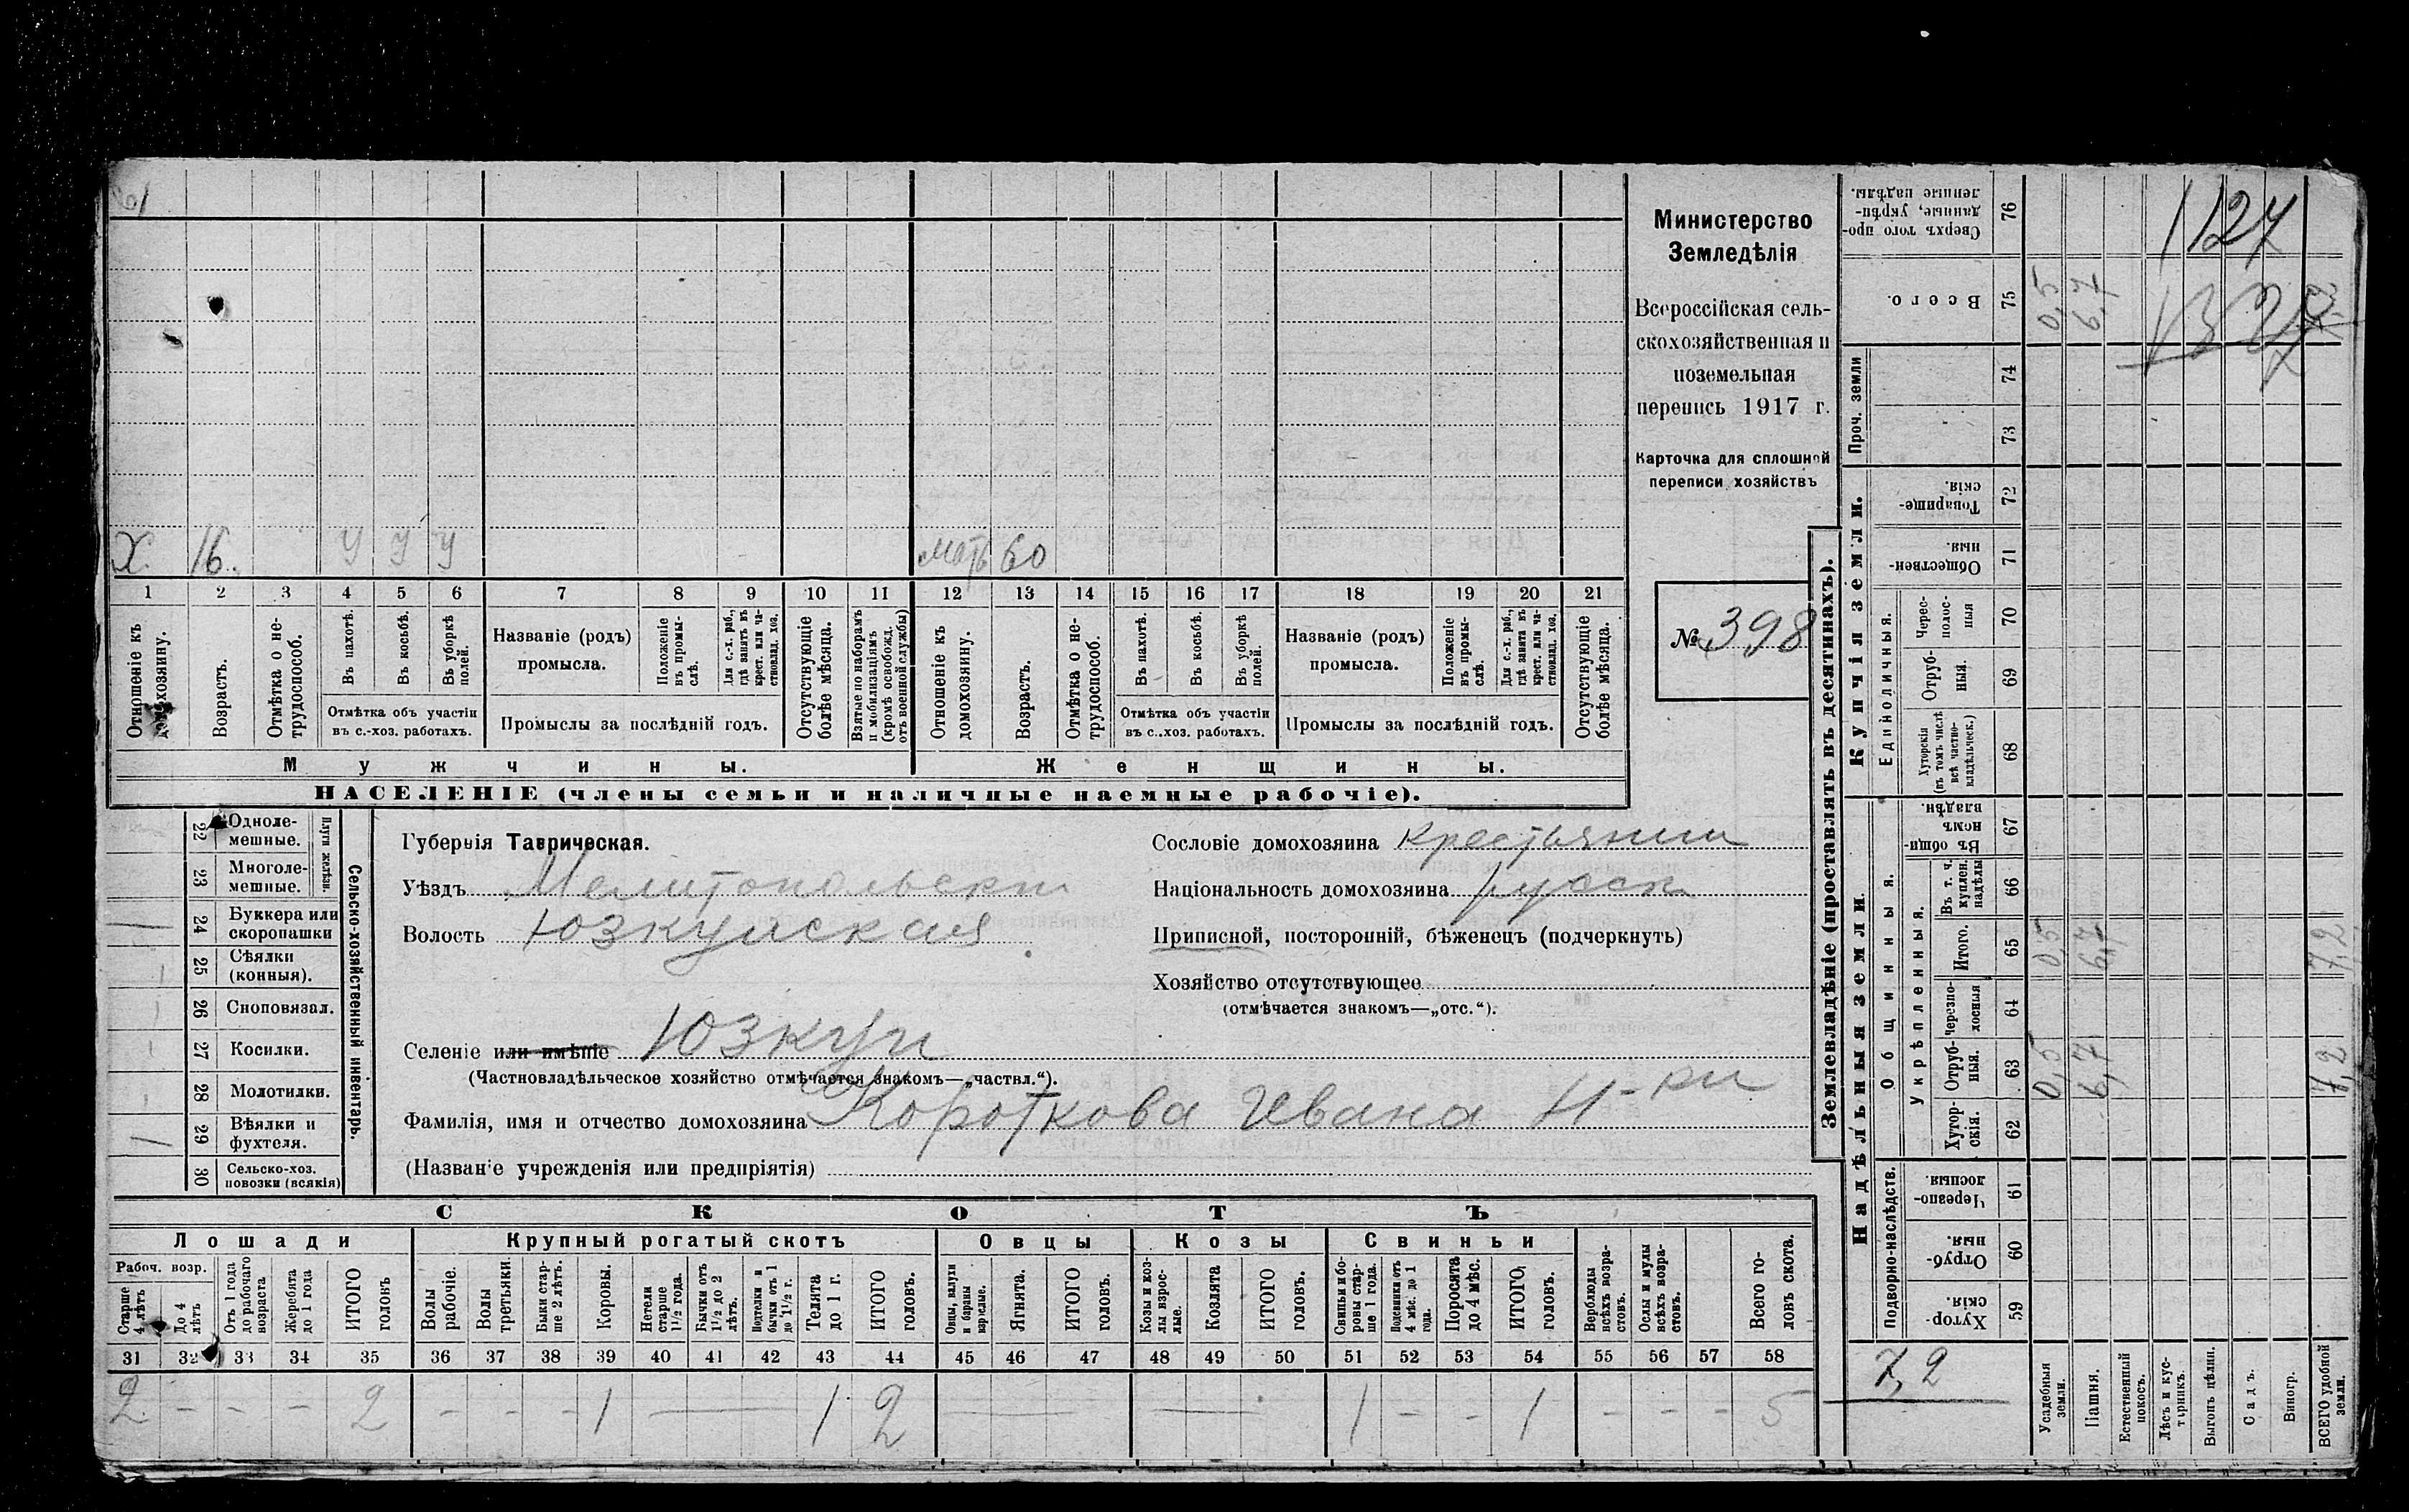 Министерство
Земледѣлія
Всероссійская сель-
скохозяйственная и
поземельная
перепись 1917 г.
Карточка для сплошной
переписи хозяйствъ
№ 398
Х 16. У У У мать 60
1 2 3 4 5 6 7 8 9 10 11 12 13 14 15 16 17 18 19 20 21
Отношеніе къ домохозяину.
Возрастъ.
Отмѣтка о не-трудоспособ.
Въ пахотѣ.
Въ косьбѣ.
Въ уборкѣ полей.
Отмѣтка объ участіи
въ с.-хоз. работахъ.
Названіе (родъ)
промысла.
Положеніе въ промы-слѣ.
Для с.-х. раб., гдѣ занятъ въ крест. или ча-стновлад. хоз.
Промыслы за послѣдній годъ.
Отсутствующіе болѣе мѣсяца.
Взятые по наборамъ и мобилизаціямъ (кромѣ освобожд. отъ военной службы)
Отношеніе къ домохозяину.
Возрастъ.
Отмѣтка о не-трудоспособ.
Въ пахотѣ.
Въ косьбѣ.
Въ уборкѣ полей.
Отмѣтка объ участіи
въ с..хоз. работахъ.
Названіе (родъ)
промысла.
Положеніе въ промы-слѣ.
Для с.-х. раб., гдѣ занята въ крест. или ча-стновлад. хоз.
Промыслы за послѣдній годъ.
Отсутствующіе болѣе мѣсяца.
Мужчины. Женщины.
НАСЕЛЕНІЕ (члены семьи и наличные наемные рабочіе).
22 Одноле-мешные.
23 Многоле-мешные.
Плуги желѣзн.
24 Буккера или скоропашки
25 Сѣялки (конныя).
26 Сноповязал.
27 Косилки.
28 Молотилки.
29 Вѣялки и фухтеля.
30 Сельско-хоз. повозки (всякія)
Сельско-хозяйственный инвентарь.
Губернія Таврическая.
Уѣздъ Мелитопольскій
Волость Юзкуйская
Селеніе или имѣніе Юзкуи
(Частновладѣльческое хозяйство отмѣчается знакомъ—„частвл.“).
Фамилія, имя и отчество домохозяина Короткова Ивана Н-ки
(Названіе учрежденія или предпріятія)
Сословіе домохозяина крестьянин
Національность домохозяина русск
Приписной, посторонній, бѣженецъ (подчеркнуть)
Хозяйство отсутствующее
(отмѣчается знакомъ—„отс.“).
СКОТЪ
Лошади Крупный рогатый скотъ Овцы Козы Свиньи
Рабоч. возр.
Старше 4 лѣтъ
До 4 лѣтъ
Отъ 1 года до рабочаго возраста
Жеребята до 1 года
ИТОГО головъ
Волы рабочіе.
Волы третьяки.
Быки стар-ше 2 лѣтъ.
Коровы.
Нетели старше 1½ года.
Бычки отъ 1½ до 2 лѣтъ.
Подтелки и бычки отъ 1 до 1½ г.
Телята до 1 г.
ИТОГО головъ.
Овцы, валухи и бараны взрослые.
Ягнята.
ИТОГО головъ.
Козы и коз-лы взрос-лые.
Козлята
ИТОГО головъ.
Свиньи и бо-ровы стар-ше 1 года.
Подсвинки отъ 4 мѣс. до 1 года.
Поросята до 4 мѣс.
ИТОГО головъ.
Верблюды всѣхъ возра-стовъ.
Ослы и мулы всѣхъ возра-стовъ.
Всего го-ловъ скота.
31 32 33 34 35 36 37 38 39 40 41 42 43 44 45 46 47 48 49 50 51 52 53 54 55 56 57 58
2 - - - 2 - - - 1 — 1 2 — — 1 - - 1 - - - 5
Землевладѣніе (проставлять въ десятинахъ).
Купчія земли.
Надѣльныя земли.
76 Сверхъ того про-данные, укрѣп-ленные надѣлы.
75 Всего. 0,5 6,7 7,2
1127
Проч. земли
74
73
72 Товарище-скія.
71 Обществен-ныя.
Единоличныя.
70 Черес-полос-ныя
69 Отруб-ныя.
68 Хуторскія (въ томъ числѣ всѣ частно-владѣльческ.)
Общинныя.
67 Въ общи-номъ владѣн.
Укрѣпленныя.
66 Въ т. ч. куплен. надѣлы
65 Итого. 0,5 6,7 7,2
64 Черезпо-лосныя
63 Отруб-ныя. 0,5 6,7 7,2
62 Хутор-скія.
Подворно-наслѣдств.
61 Черезпо-лосныя.
60 Отруб-ныя.
59 Хутор-скія.
7,2
Усадебныя земли.
Пашня.
Естественный покосъ.
Лѣсъ и кус-тарникъ.
Выгонъ цѣлин.
Садъ.
Виногр.
ВСЕГО удобной земли.